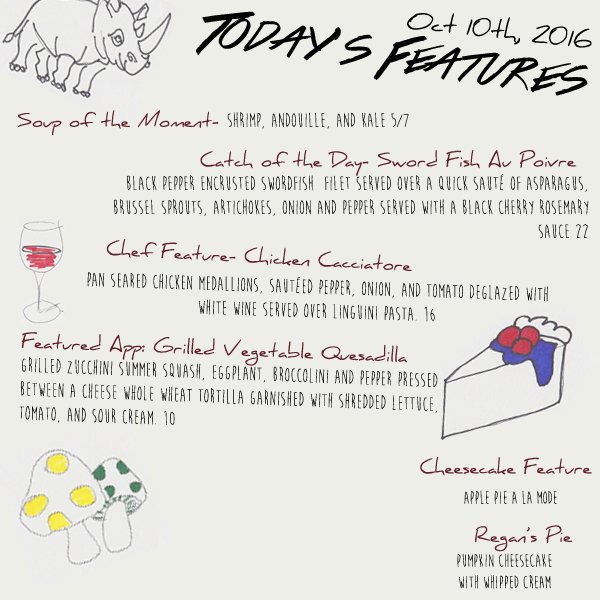 Oct 10th, 2016
Today's Features
Soup of the Moment- Shrimp, Andouille, and Kale 5/7
Catch of the Day- Sword Fish Au Poivre
Black Pepper Encrusted Swordfish Filet served over a quick sauté of asparagus,
Brussel sprouts, artichokes, onion and pepper served with a black cherry rosemary
sauce 22
Chef Feature- Chicken Cacciatore
Pan seared chicken medallions, sautéed pepper, onion, and tomato deglazed with
white wine served over linguini pasta. 16
Featured App: Grilled Vegetable Quesadilla
Grilled zucchini summer squash, eggplant, broccolini and pepper pressed
between a cheese whole wheat tortilla garnished with shredded lettuce,
tomato, and sour cream. 10
Cheesecake Feature
Apple Pie A La Mode
Regan's Pie
Pumpkin Cheesecake
with Whipped Cream